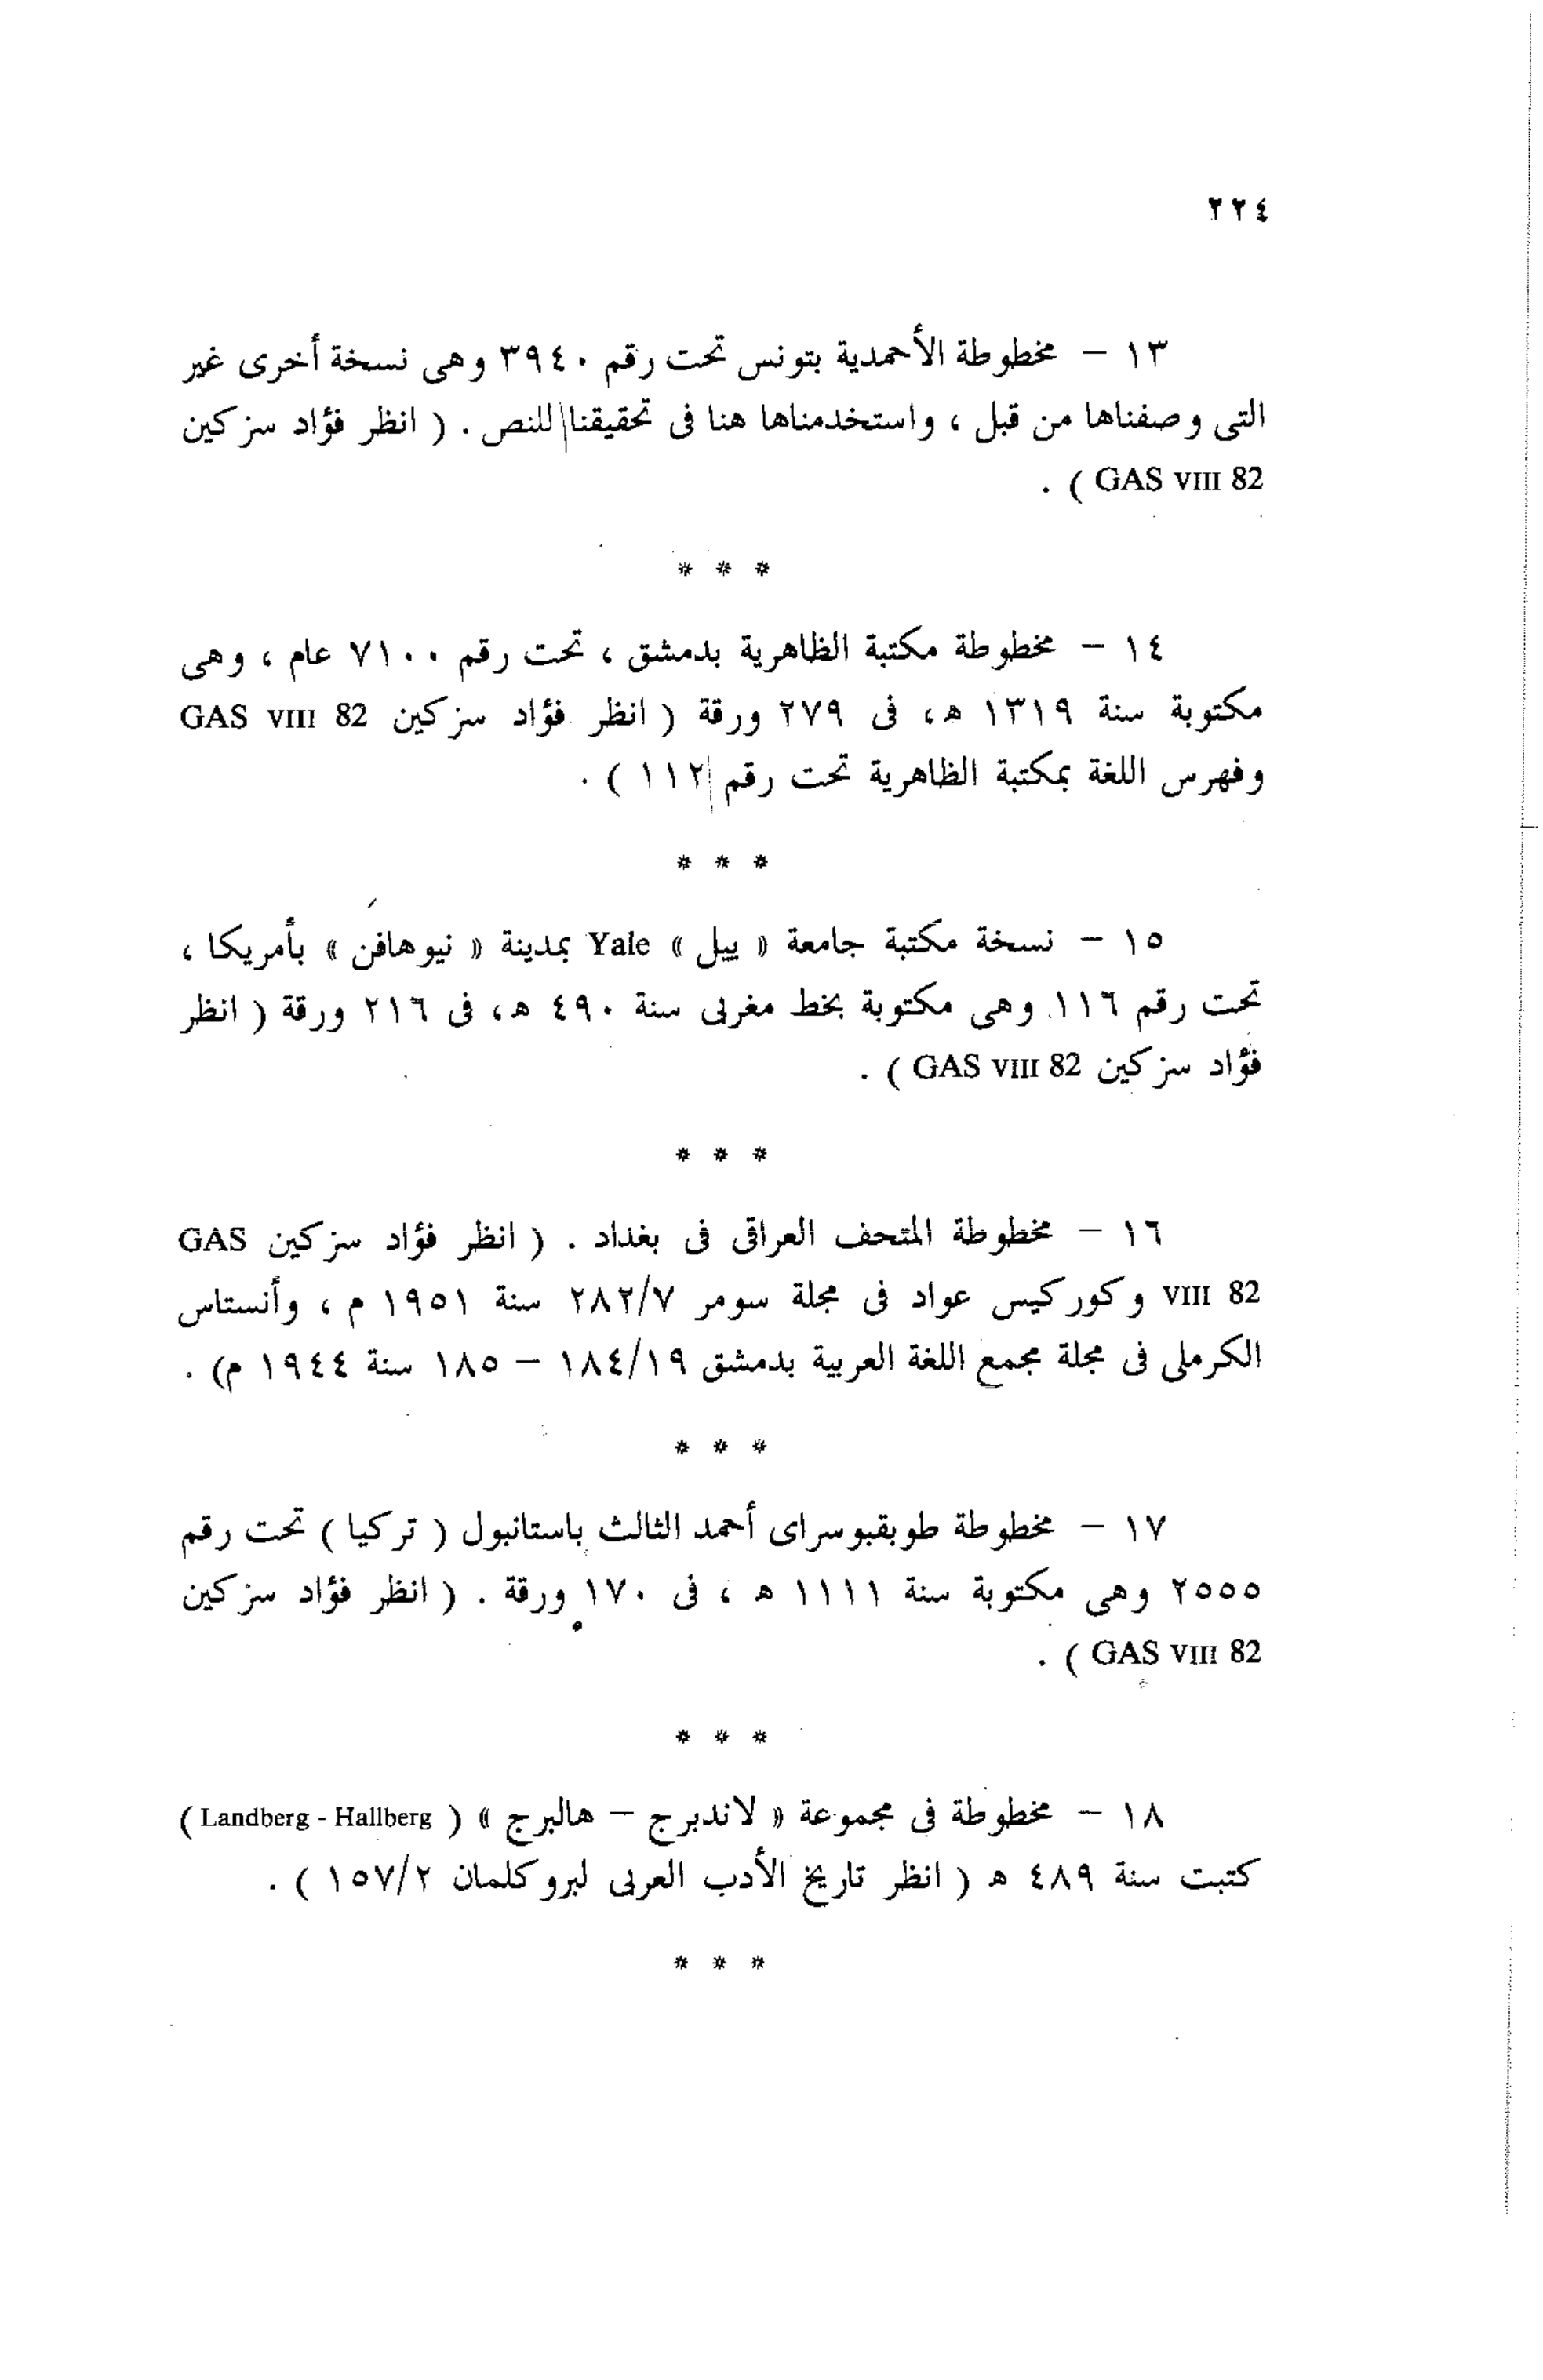 ٢٢٤
١٣ – مخطوطة الأحمدية بتونس تحت رقم ٣٩٤٠ وهى نسخة أخرى غير
التى وصفناها من قبل ، واستخدمناها هنا فى تحقيقنا للنص . ( انظر فؤاد سزكين
GAS VIII 82 ) .
* * *
١٤ – مخطوطة مكتبة الظاهرية بدمشق ، تحت رقم ٧١٠٠ عام ، وهى
مكتوبة سنة ١٣١٩ هـ، فى ٢٧٩ ورقة ( انظر فؤاد سزكين GAS VIII 82
وفهرس اللغة بمكتبة الظاهرية تحت رقم ١١٢ ) .
* * *
١٥ – نسخة مكتبة جامعة « ييل » Yale بمدينة « نيوهافن » بأمريكا ،
تحت رقم ١١٦ وهى مكتوبة بخط مغربى سنة ٤٩٠ هـ، فى ٢١٦ ورقة ( انظر
فؤاد سزكين GAS VIII 82 ) .
* * *
١٦ – مخطوطة المتحف العراقى فى بغداد . ( انظر فؤاد سزكين GAS
VIII 82 وكوركيس عواد فى مجلة سومر ٢٨٢/٧ سنة ١٩٥١ م ، وأنستاس
الكرملى فى مجلة مجمع اللغة العربية بدمشق ١٨٤/١٩ – ١٨٥ سنة ١٩٤٤ م) .
* * *
١٧ – مخطوطة طوبقبوسراى أحمد الثالث باستانبول ( تركيا ) تحت رقم
٢٥٥٥ وهى مكتوبة سنة ١١١١ هـ ، فى ١٧٠ ورقة . ( انظر فؤاد سزكين
GAS VIII 82 ) .
* * *
١٨ – مخطوطة فى مجموعة « لاندبرج – هالبرج » ( Landberg - Hallberg )
كتبت سنة ٤٨٩ هـ ( انظر تاريخ الأدب العربى لبروكلمان ١٥٧/٢ ) .
* * *